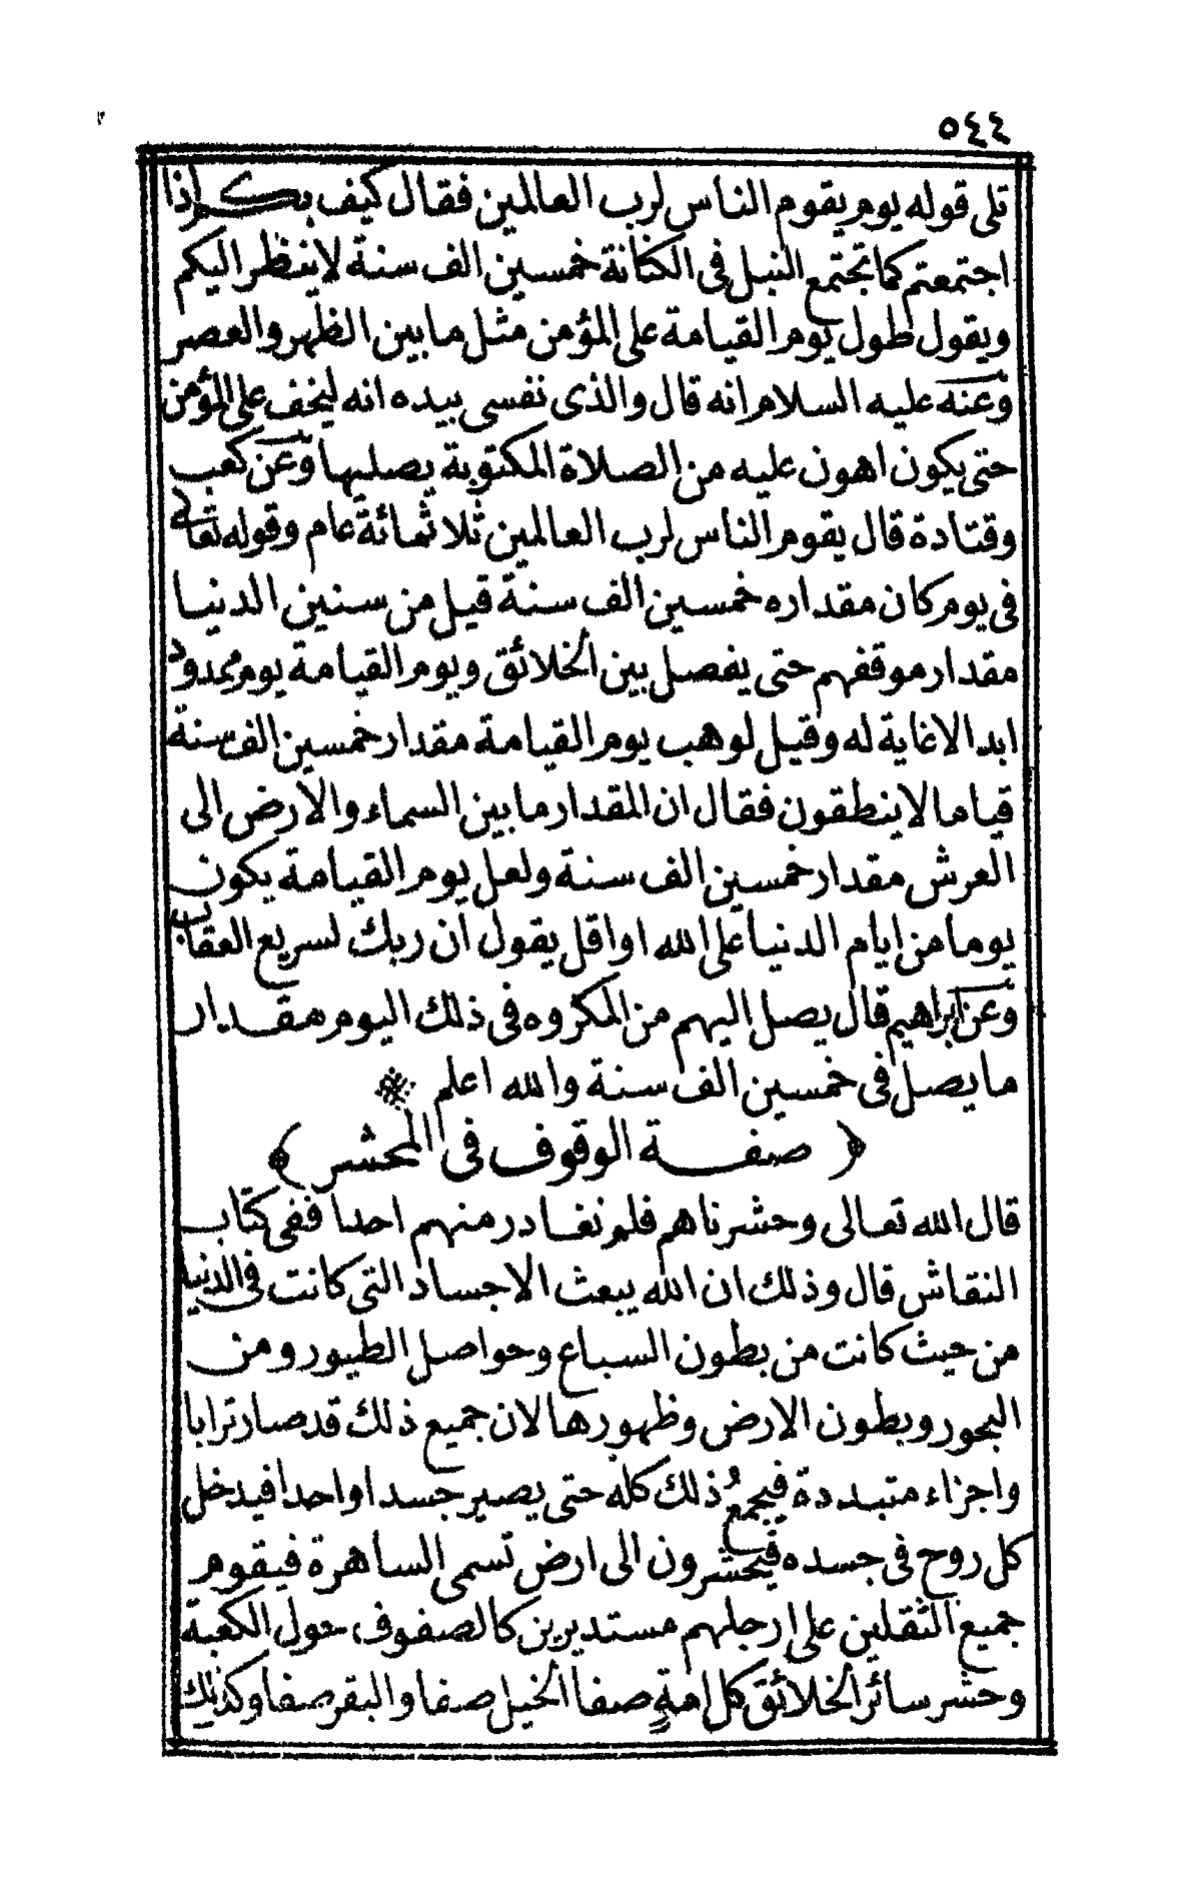 ٥٤٤
تلى قوله يوم يقوم الناس لرب العالمين فقال كيف بكم اذا
اجتمعتم كما تجتمع النبل فى الكنانة خمسين الف سنة لا ينظر اليكم
ويقول طول يوم القيامة على المؤمن مثل ما بين الظهر والعصر
وعنه عليه السلام انه قال والذى نفسى بيده انه ليخفف على المؤمن
حتى يكون اهون عليه من الصلاة المكتوبة يصليها وعن كعب
وقتادة قال يقوم الناس لرب العالمين ثلاثمائة عام وقوله تعالى
فى يوم كان مقداره خمسين الف سنة قيل من سنين الدنيا
مقدار موقفهم حتى يفصل بين الخلائق ويوم القيامة يوم ممدود
ابدا لا غاية له وقيل لوهب يوم القيامة مقدار خمسين الف سنة
قياما لا ينطقون فقال ان المقدار ما بين السماء والارض الى
العرش مقدار خمسين الف سنة ولعل يوم القيامة يكون
يوما من ايام الدنيا على الله او اقل يقول ان ربك لسريع العقاب
وعن ابراهيم قال يصل اليهم من المكروه فى ذلك اليوم مقدار
ما يصل فى خمسين الف سنة والله اعلم
﴿ صفة الوقوف فى المحشر ﴾
قال الله تعالى وحشرناهم فلم نغادر منهم احدا ففى كتاب
النقاش قال وذلك ان الله يبعث الاجساد التى كانت فى الدنيا
من حيث كانت من بطون السباع وحواصل الطيور ومن
البحور وبطون الارض وظهورها لان جميع ذلك قد صار ترابا
واجزاء متبددة فيجمع ذلك كله حتى يصير جسدا واحدا فيدخل
كل روح فى جسده فيحشرون الى ارض تسمى الساهرة فيقوم
جميع الثقلين على ارجلهم مستديرين كالصفوف حول الكعبة
وحشر سائر الخلائق كل امةٍ صفا الخيل صفا والبقر صفا وكذلك